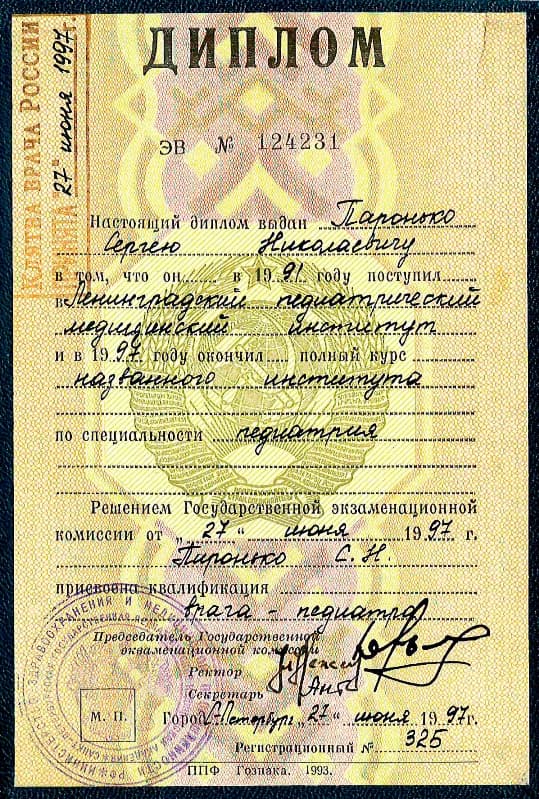 ДИПЛОМ
КЛЯТВА ВРАЧА РОССИИ
"27" июня 1997 г.
ЭВ № 124231
Настоящий диплом выдан Паронько
Сергею Николаевичу
в том, что он в 1991 году поступил
в Ленинградский педиатрический
медицинский институт
и в 1997 году окончил полный курс
названного института
по специальности педиатрия
Решением Государственной экзаменационной
комиссии от "27" июня 1997 г.
Паронько С. Н.
присвоена квалификация
врача - педиатра
Председатель Государственной
экзаменационной комиссии
Ректор
Секретарь
М. П.
Город С-Петербург "27" июня 1997 г.
Регистрационный № 325
ППФ Гознака. 1993.